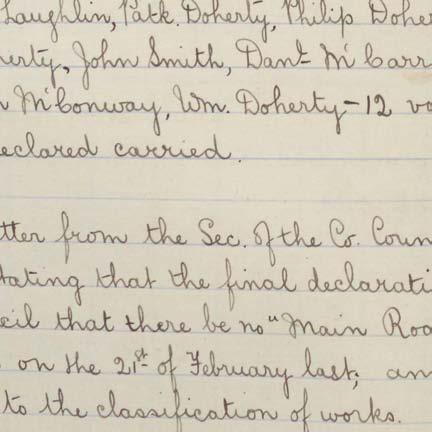 Laughlin, Patk. Doherty, Philip Doher
erty, John Smith, Danl. McCarr
n McConway, Wm. Doherty - 12 vo
eclared carried.
tter from the Sec. of the Co. Coun
tating that the final declarati
cil that there be no "Main Roa
on the 21st of February last; an
to the classification of works.